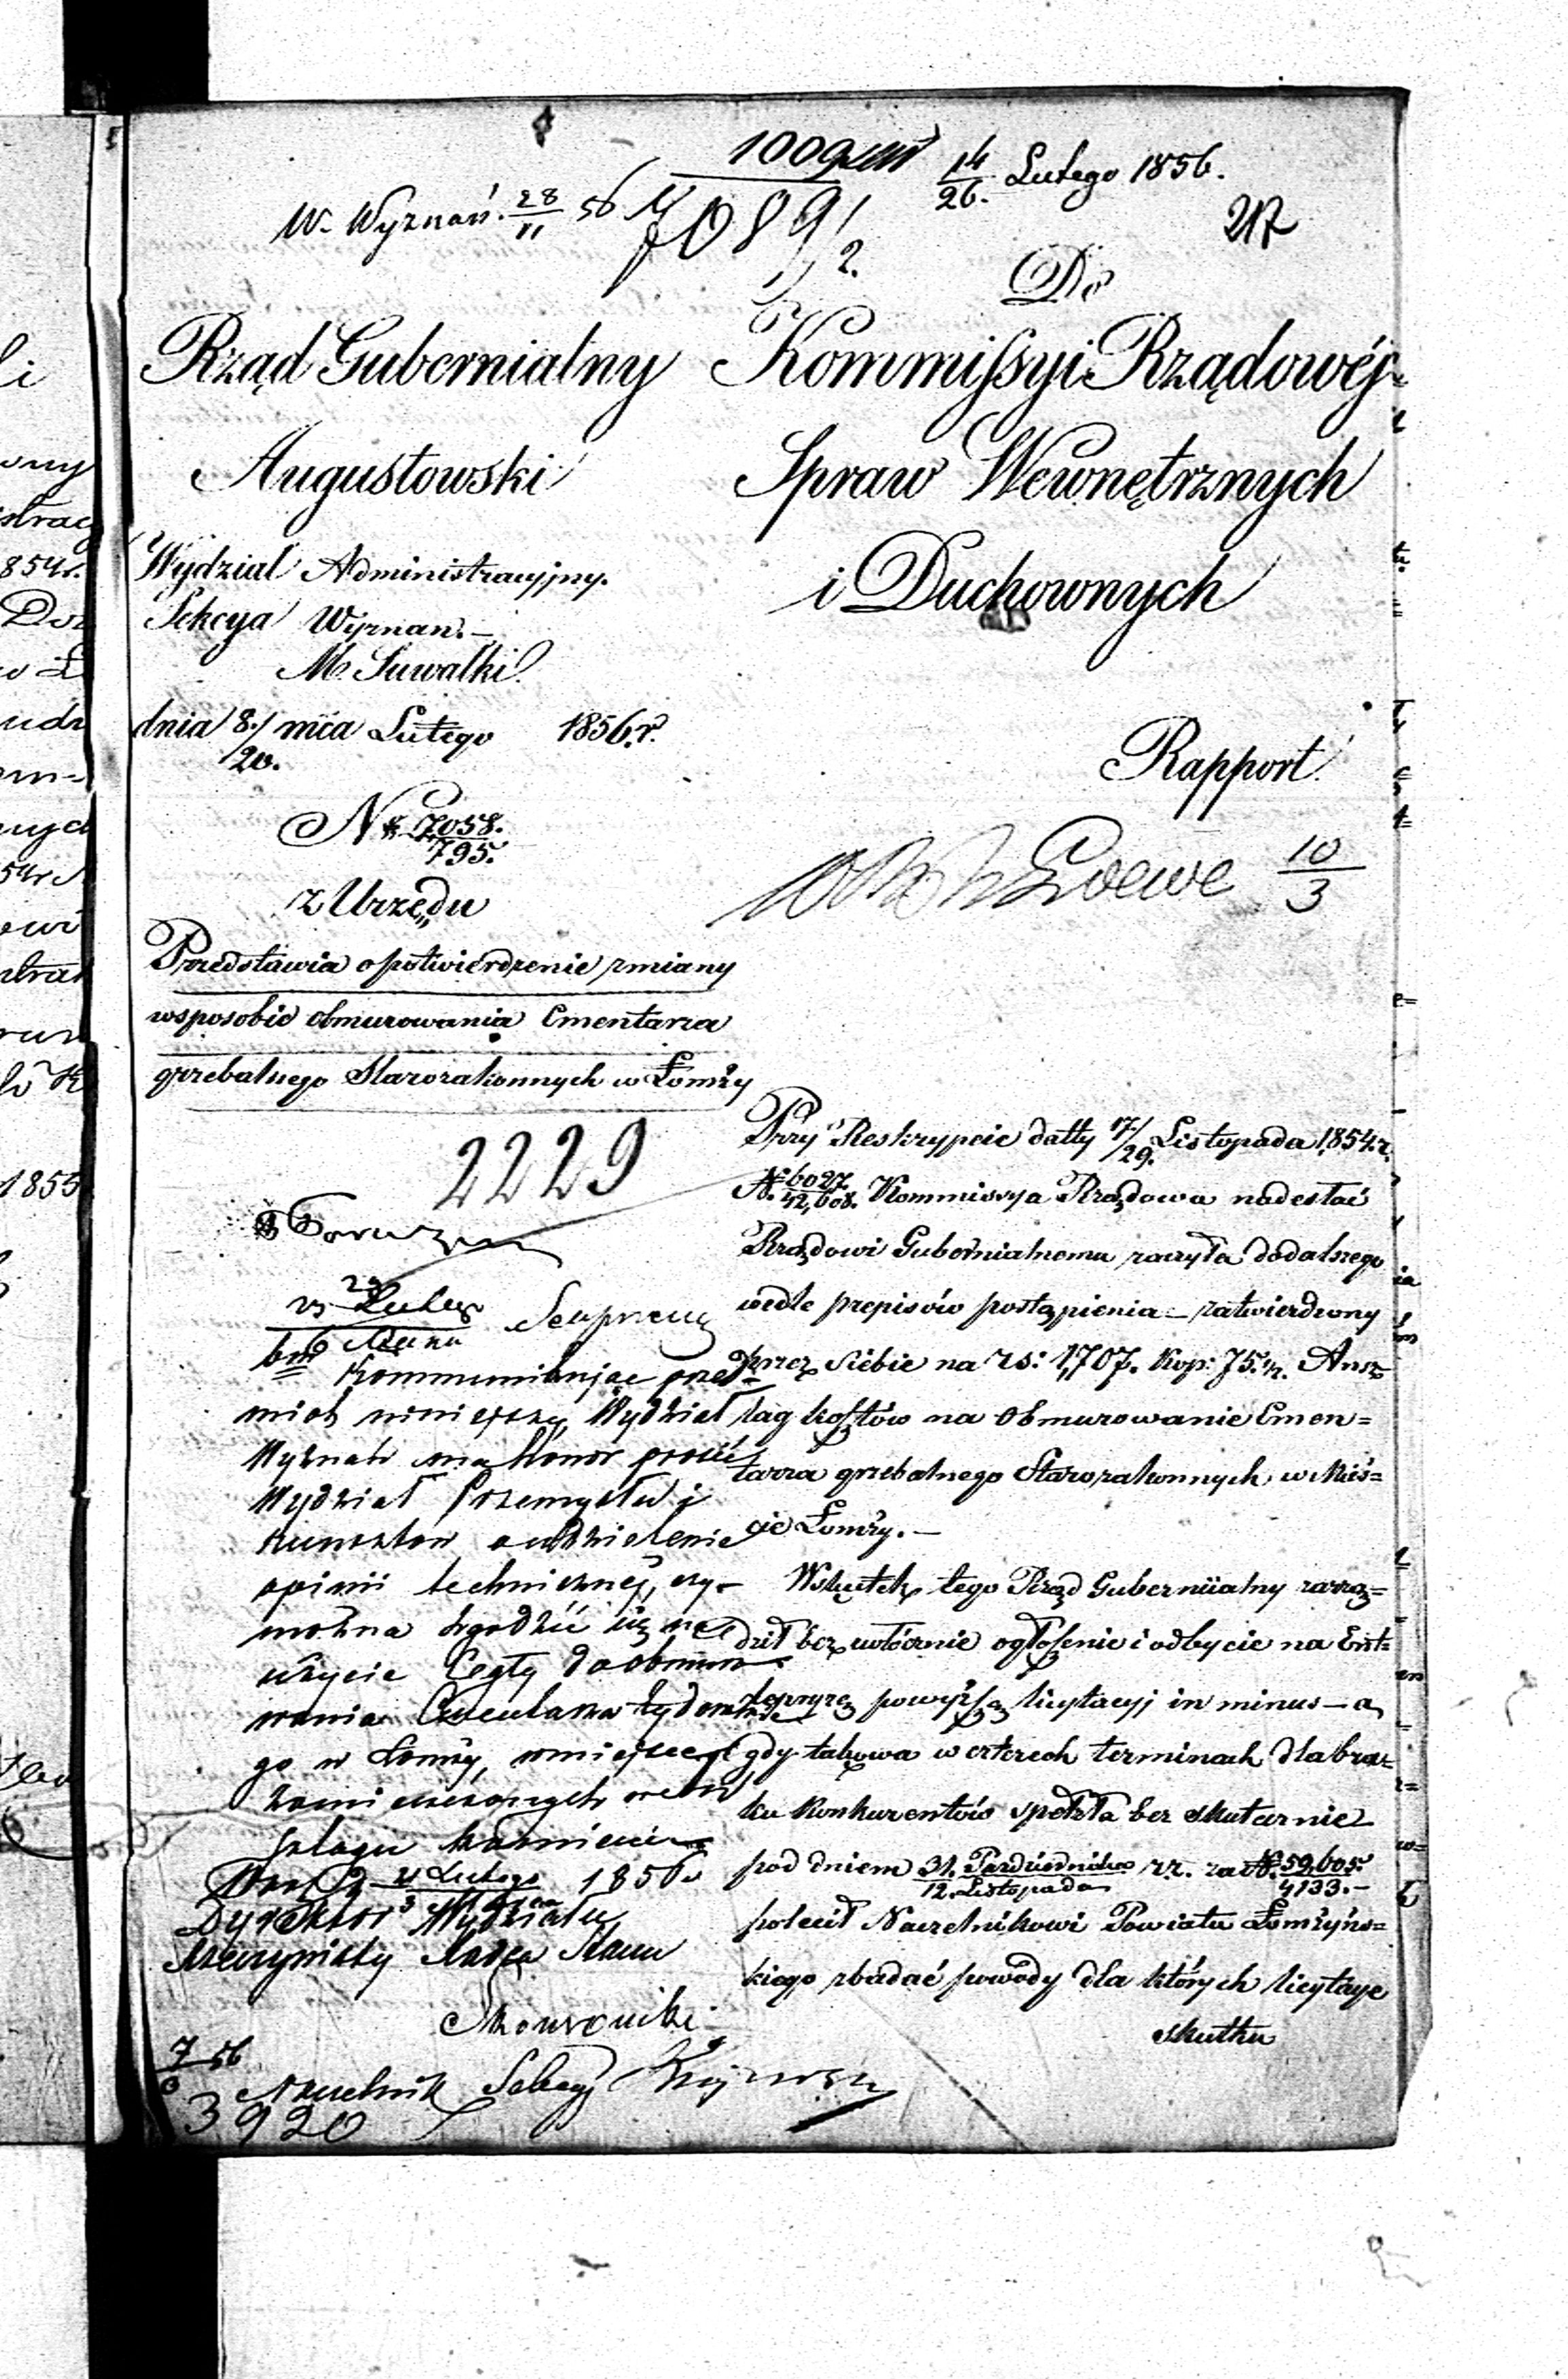 14/26. Lutego 1856.
W. Wyznań. 28/II 56
7089/2.
217
Do
Rząd Gubernialny
Augustowski
Kommissyi Rządowéj
Spraw Wewnętrznych
i Duchownych
Wydział Administracyjny.
Sekcya Wyznań.
M. Suwałki
dnia 8./20. mca Lutego 1856.r.
Rapport
N 7058./795.
z Urzędu
10/3
Przedstawia o potwierdzenie zmiany
w sposobie obmurowania Cmentarza
grzebalnego Starozakonnych w Łomży
2229
Przy Reskrypcie datty 17/29. Listopada 1854.r.
N. 6027/42,608. Kommissya Rządowa nadesłać
Rządowi Gubernialnemu raczyła do dalszego
wedle przepisów postąpienia – zatwierdzony
przez siebie na rs: 1,707. Kop: 75.½. Ansz
lag kosztów na obmurowanie Cmen=
tarza grzebalnego Starozakonnych w Mieś=
cie Łomży. –
Wskutek tego Rząd Gubernialny zarzą=
dził bezzwłócznie ogłoszenie i odbycie na Ent=
repryzę powyższą licytacyi in minus – a
gdy takowa w czterech terminach dla bra=
ku Konkurentów spełzła bez skutecznie
pod dniem 31. Października/12. Listopada r.z. za N. 59,605./4133. –
polecił Naczelnikowi Powiatu Łomżyńs=
kiego zbadać powody dla których licytacye
skutku
Kommunikując przed=
miot niniejszy, Wydział
Wyznań ma honor prosić
Wydział Przemysłu i
Kunsztów o udzielenie
opinii technicznej, czy
można zgodzić się na
użycie Cegły do obmuro
wania Cmentarza żydowskie
go w Łomży, w miejsce
zamieszczonych w
szlagu kamieni
Dnia 21 Lutego/3 Marca 1856
Dyrektor Wydziału
Rzeczywisty Radca Stanu
7/3 56
Naczelnik Sekcyi
3920